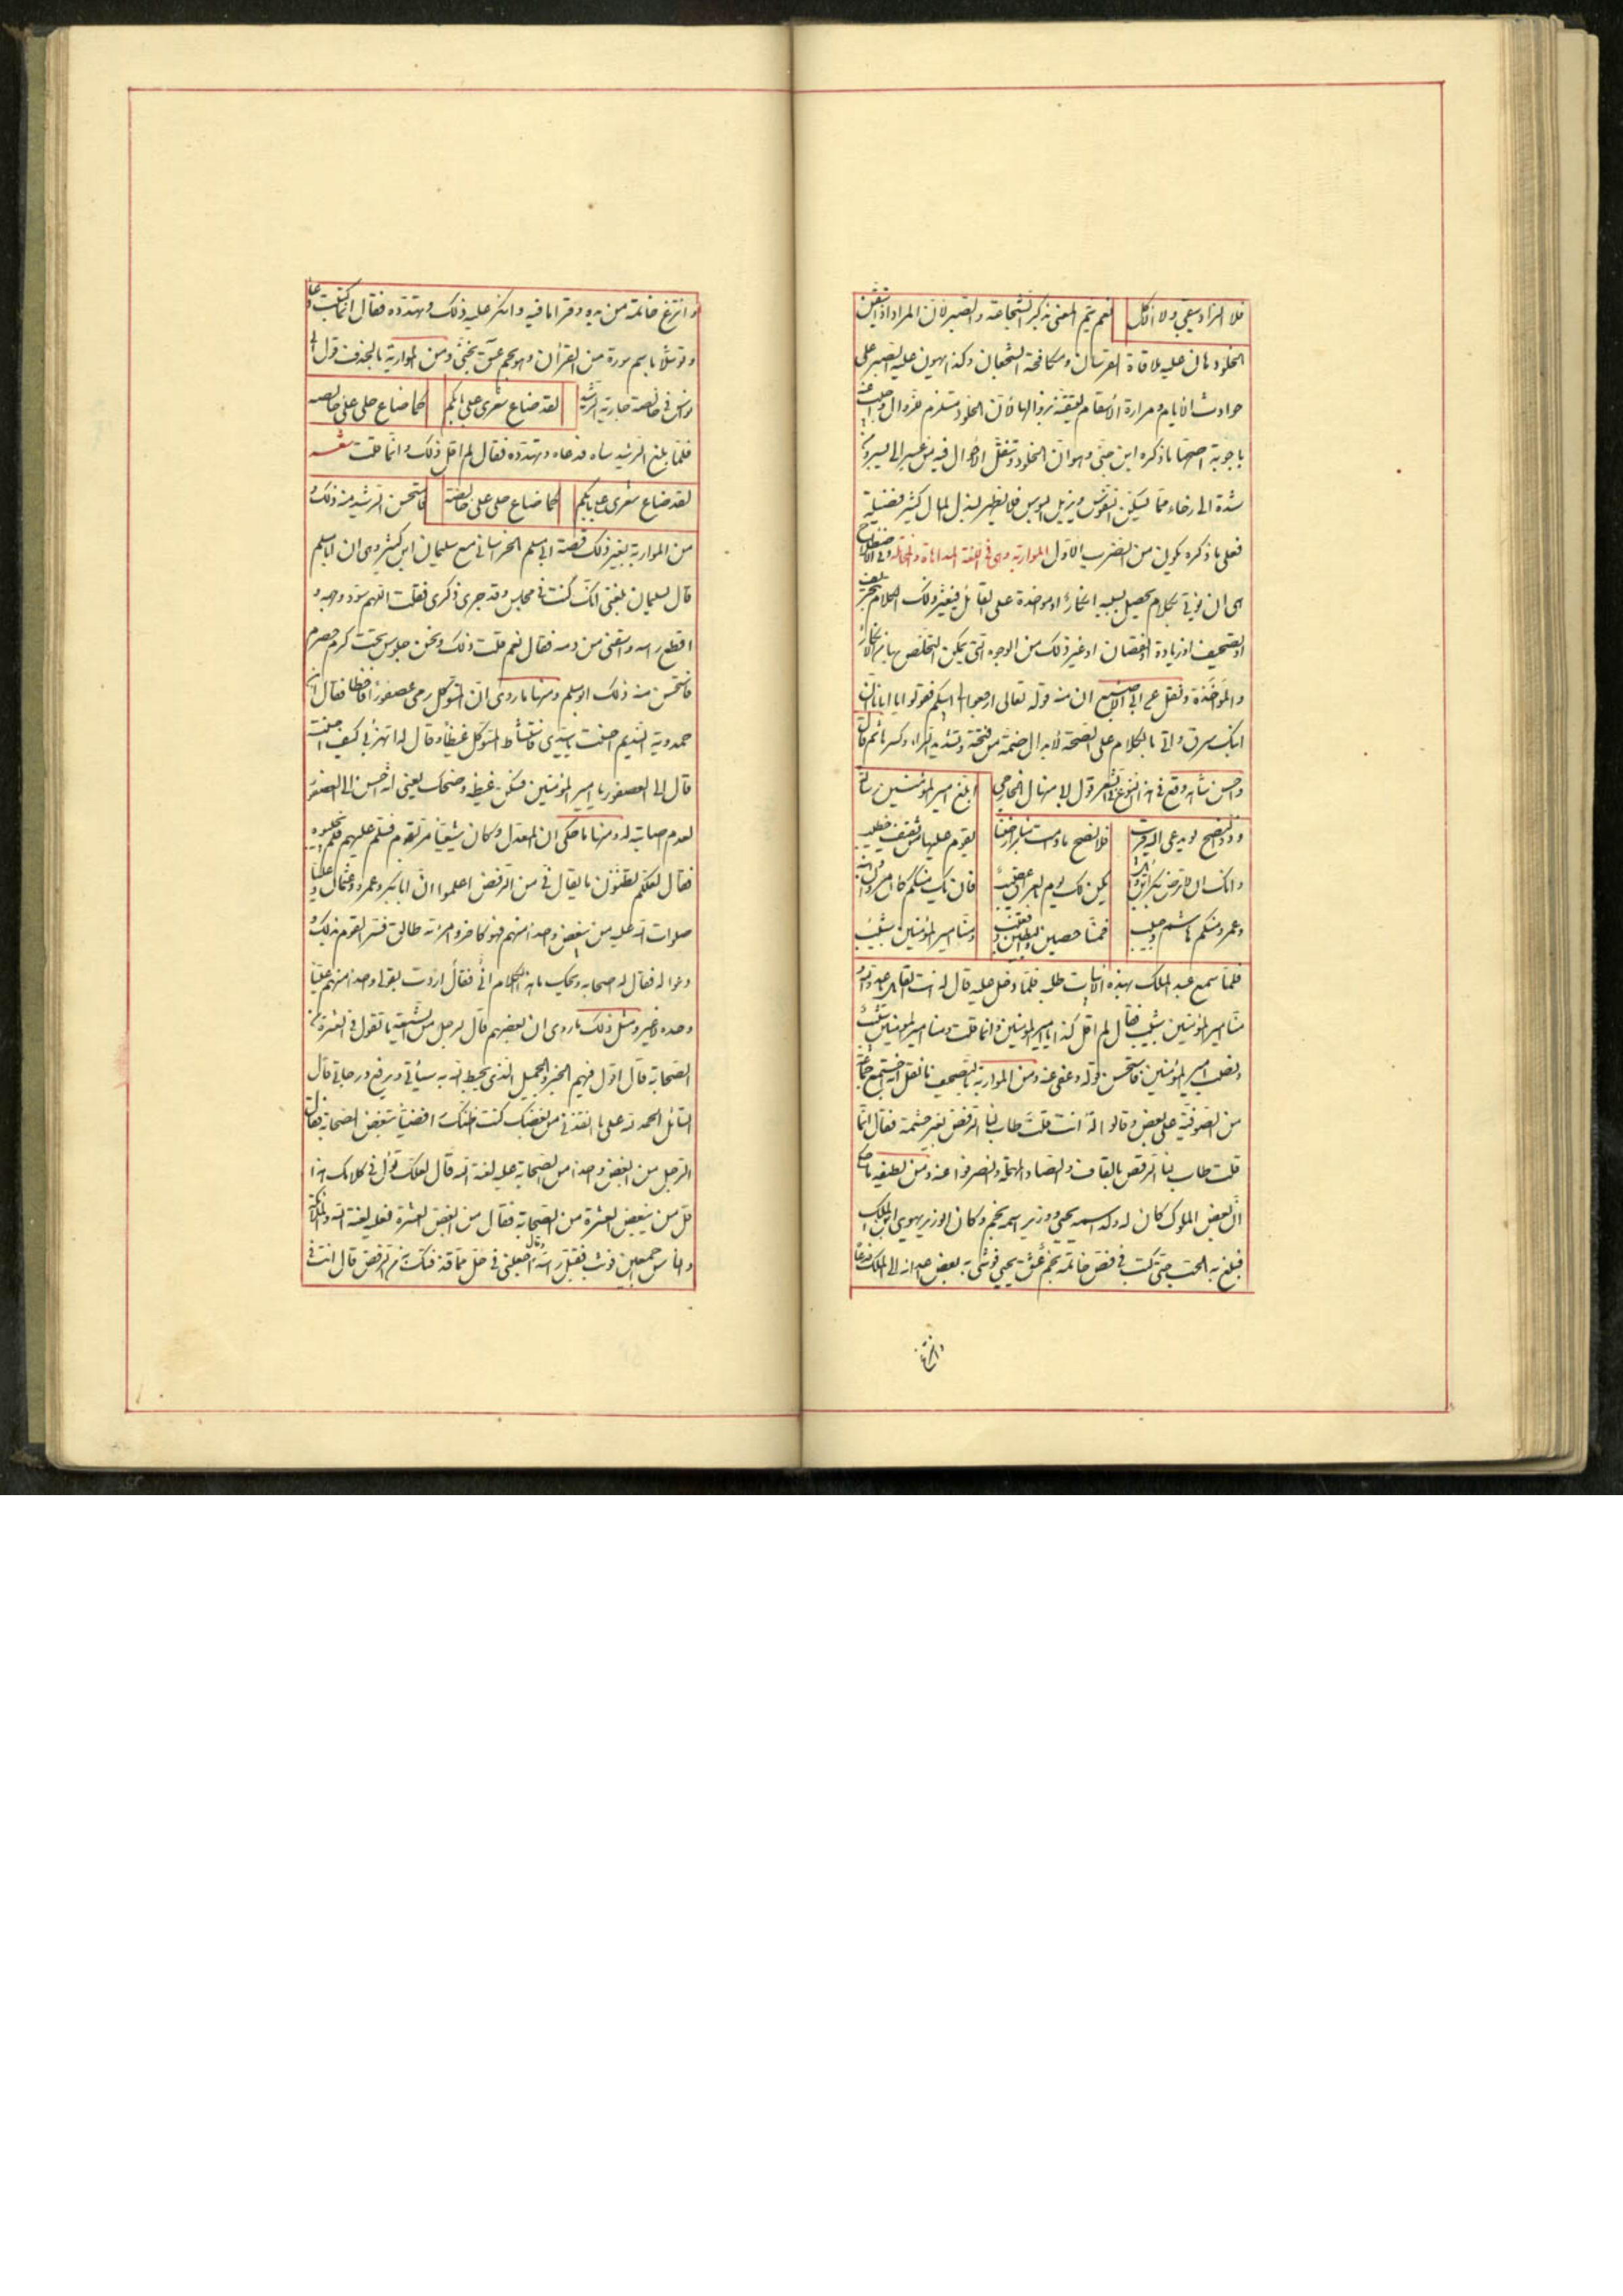 فلا الزاد يبقى ولا الاكل نعم يتم المعنى بذكر الشجاعة والصبر لان المراد اذا تيقن
الخلود هان عليه ملاقاة الفرسان ومكافحة الشجعان وكذا يهون عليه الصبر على
حوادث الايام ومرارة الأسقام لتيقنه بزوالها لأن الخلود مستلزم لزوال واجيب عنه
باجوبة اصحها ما ذكره ابن جنى وهو ان الخلود وتنقل الاحوال فيه من عسر الى يسر ومن
شدة الى رخاء مما يسكن النفوس ويزيل البوس فلا يظهر لبذل المال كثير فضيلة
فعلى ما ذكره يكون من الضرب الاول المواربة وهى فى اللغة المداهاة والمخاتلة وفى الاصطلاح
هى ان يؤتى بكلام يحصل بسببه انكار او مواخذة على القائل فيغير ذلك الكلام بتحريف
او تصحيف او زيادة او نقصان او غير ذلك من الوجوه التى يمكن التخلص بها من الانكار
والمؤاخذة ونقل عن ابى الاصبع ان منه قوله تعالى ارجعوا الى ابيكم فقولوا يا ابانا ان
ابنك سرق واتى بالكلام على الصحة لابدال ضمة من فتحة وتشديد الراء وكسرها ثم قال
واحسن شاهد وقع فى هذا النوع فى الشعر قول ابى منهال الخارجى ابلغ امير المؤمنين رسالة
وذو النصح لو يدعى اليه قريب فلا نصح ما دامت منابر ارضنا يقوم عليها من ثقيف خطيب
وانك ان لا ترض بكر بن وائل يكن لك يوم بالعراق عصيب فان يك منكم كان مروان وابنه
وعمرو ومنكم هاشم وحبيب فمنا حصين والبطين وقعنب ومنا امير المؤمنين شبيب
فلما سمع عبد الملك بهذه الأبيات طلبه فلما دخل عليه قال له انت القائل
منا امير المؤمنين شبيب فقال لم اقل كذا يا امير المؤمنين وانما قلت ومنا امير المؤمنين شبيب
ونصب امير المؤمنين فاستحسن قوله وعفى عنه ومن المواربة بالتصحيف ما نقل انه اجتمع جماعة
من الصوفية على بعض وقالوا له انت قلت طاب لنا الرفض بغير حشمة فقال انما
قلت طاب لنا الرقص بالقاف والصاد المهملة وانصرفوا عنه ومن لطيفه ما حكى
ان بعض الملوك كان له ولد اسمه يحيى ووزير اسمه نجم وكان الوزير يهوى ابن الملك
فبلغ به الحب حتى كتب فى فص خاتمه نجم عشق يحيى فوشى به بعض اعدائه الى الملك فدعاه
وانتزع
وانتزع خاتمه من يده وقرأ ما فيه وانكر عليه ذلك وتهدده فقال انما كتبت دعا
وتوسلا باسم سورة من القرأن وهو بحم عسق نجنى ومن المواربة بالحذف قول ابى
نواس فى خالصة جارية الرشيد لقد ضاع شعرى على بابكم كما ضاع حلى على خالصه
فلما بلغ الرشيد ساه فدعاه وتهدده فقال لم اقل ذلك وانما قلت شعر
لقد ضاء شعرى على بابكم كما ضاء حلى على خالصة فاستحسن الرشيد منه ذلك و
من المواربة بغير ذلك قصة ابى مسلم الخراسانى مع سليمان ابن كثير وهى ان ابا مسلم
قال لسليمان بلغنى انك كنت فى مجلس وقد جرى ذكرى فقلت اللهم سود وجهه و
اقطع راسه واسقنى من دمه فقال نعم قلت ذلك ونحن جلوس تحت كرم حصرم
فاستحسن منه ذلك ابو مسلم ومنها ما روى ان المتوكل رمى عصفورا فاخطا فقال ابن
حمدوية النديم احسنت يا سيدى فاستشاط المتوكل غيظا وقال له اتهزأ بى كيف احسنت
قال الى العصفور يا امير المؤمنين فسكن غيظه وضحك يعنى انه احسن الى العصفور
لعدم اصابته له ومنها ما حكى ان المعدل وكان شيعيا مر بقوم فسلم عليهم فلم يجيبوه
فقال لعلكم تظنون ما يقال فى من الرفض اعلموا ان ابا بكر وعمر وعثمان وعليا
صلوات الله عليه من نبغض واحدا منهم فهو كافر وامرأته طالق فسر القوم بذلك و
دعوا له فقال له اصحابه ويحك ما هذا الكلام فقال اردت بقولى واحدا منهم عليا
وحده لا غير ومثل ذلك ما روى ان بعضهم قال لرجل من الشيعة ما تقول فى العشرة من
الصحابة قال اقول فيهم الخير والجميل الذى يحيط الله به سيأتى ويرفع درجاتى قال
السائل الحمد لله على ما انقذنى من بغضك كنت اظنك رافضيا تبغض الصحابة فقال
الرجل من ابغض واحدا من الصحابة عليه لعنة الله قال لعلك تؤل فى كلامك هذا
قل من يبغض العشرة من الصحابة فقال من ابغض العشرة فعليه لعنة الله والملائكة
والناس اجمعين فوثب فقبل راسه وقال اجعلنى فى حل مما قذفتك به من الرفض قال انت فى